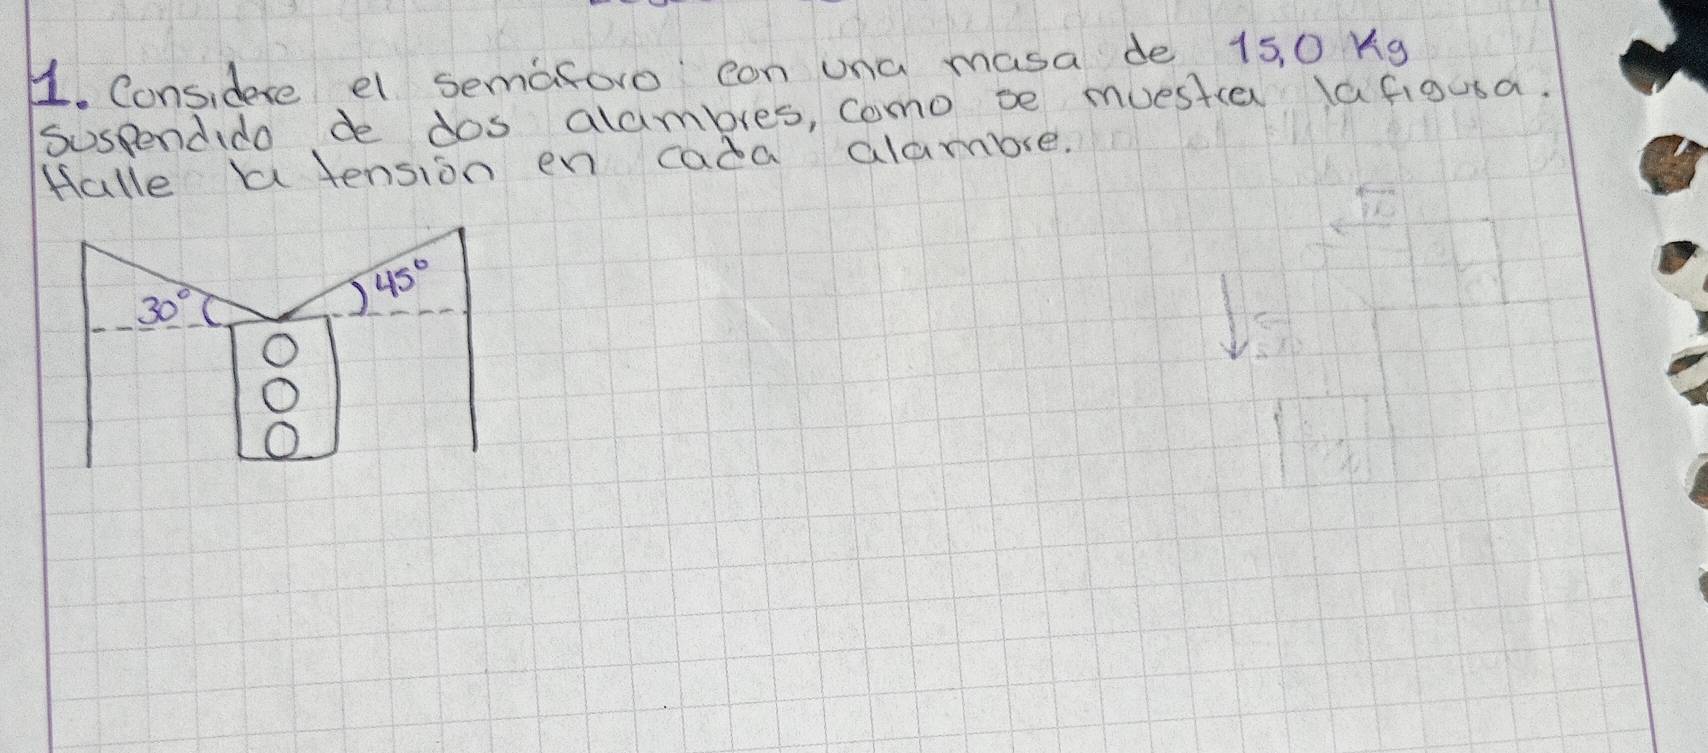 1. Considere el semáforo con una masa de 15,0 Kg
suspendido de dos alambres, como se muestra la figura.
Halle la tensión en cada alambre.
30° 45°